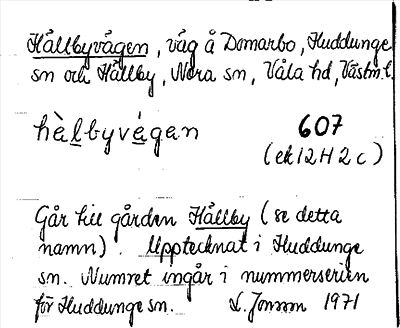 Hållbyvägen, väg å Domarbo, Huddunge
sn och Hållby, Nora sn, Våla hd, Västm.l.
hèlbyvégan 607
(ek 12 H 2 c)
Går till gården Hållby (se detta
namn). Upptecknat i Huddunge
sn. Numret ingår i nummerserien
för Huddunge sn. L. Jonson 1971